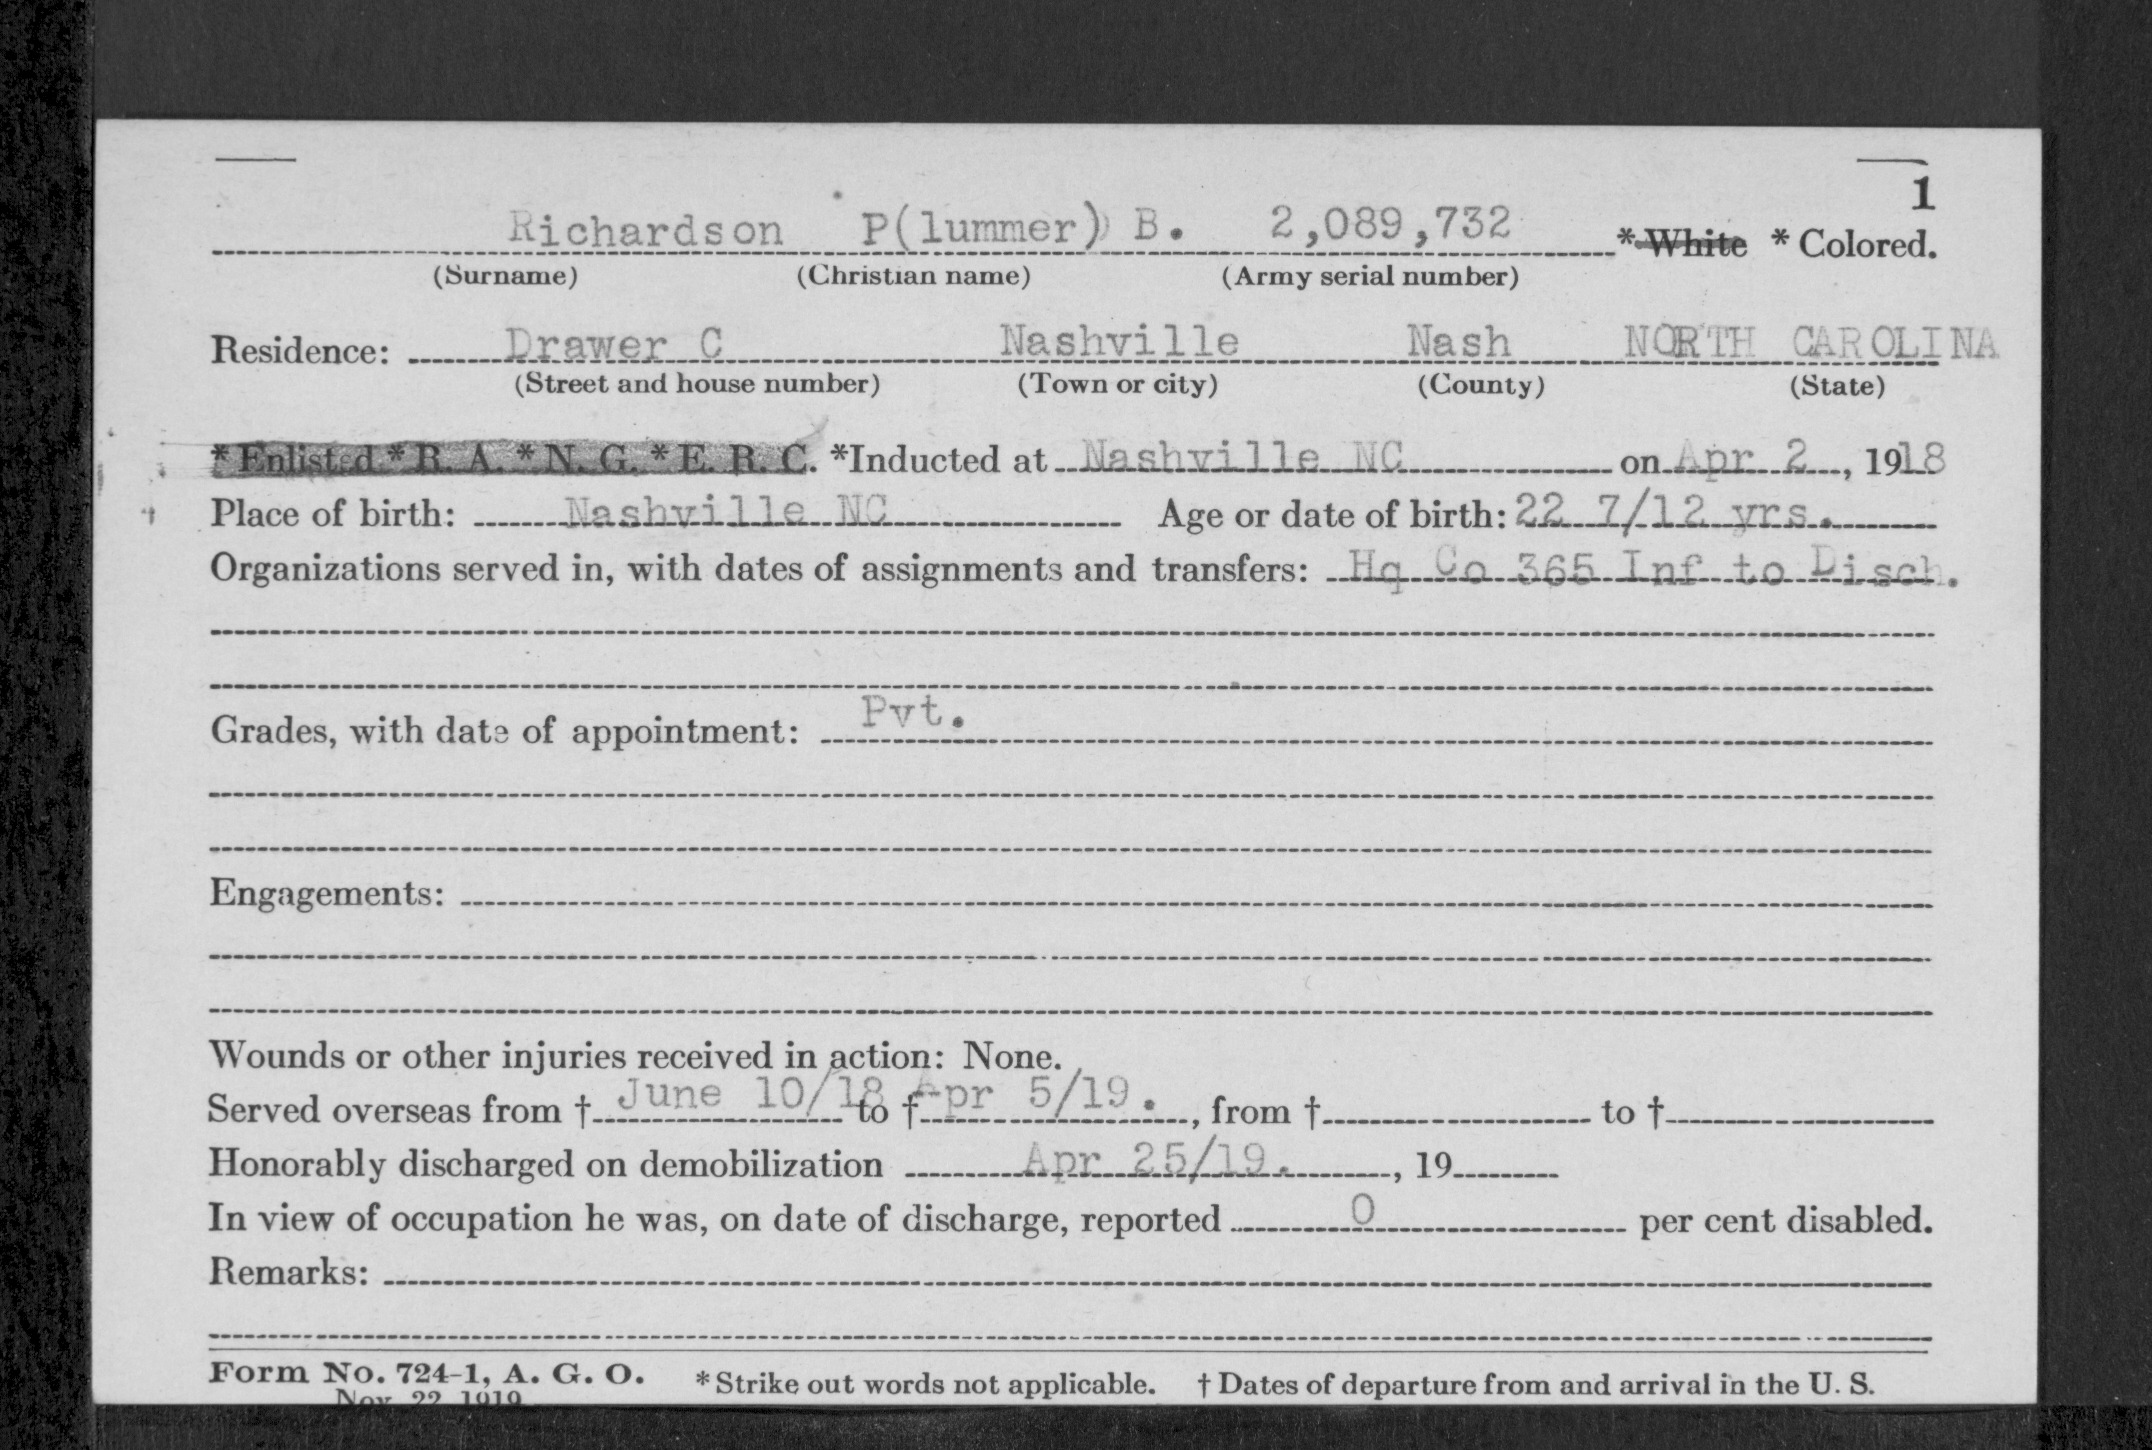 1
Richardson P(lummer) B. 2,089,732 * White * Colored.
(Surname) (Christian name) (Army serial number)
Residence: Drawer C Nashville Nash NORTH CAROLINA
(Street and house number) (Town or city) (County) (State)
* Enlisted * R. A. * N. G. * E. R. C. *Inducted at Nashville NC on Apr 2, 1918
Place of birth: Nashville NC Age or date of birth: 22 7/12 yrs.
Organizations served in, with dates of assignments and transfers: Hq Co 365 Inf to Disch.
Grades, with date of appointment: Pvt.
Engagements:
Wounds or other injuries received in action: None.
Served overseas from † June 10/18 to † Apr 5/19., from † to †
Honorably discharged on demobilization Apr 25/19., 19
In view of occupation he was, on date of discharge, reported 0 per cent disabled.
Remarks:
Form No. 724-1, A. G. O. * Strike out words not applicable. † Dates of departure from and arrival in the U. S.
Nov. 22 1919